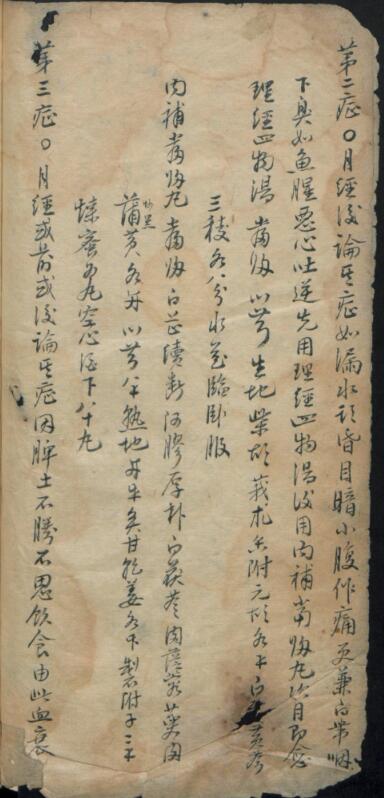 第二症〇月經後論其症如漏水頭昏目暗小腹作痛更兼白帶咽
下臭如魚腥惡心吐逆先用理經四物湯後用內補當歸丸次月即愈
理經四物湯 當歸 川芎 生地 柴胡 莪朮 香附 元胡各半 白芍 黃芩
三稜各八分水煎臨卧服
內補當歸丸 當歸 白芷 續斷 阿膠 厚朴 白茯苓 肉蓯蓉 萸肉
蒲黃炒黑各両 川芎八半 熟地両半 炙甘 乾姜各半 製附子二半
煉蜜為丸空心酒下八十丸
第三症〇月經或前或後論其症因脾土不勝不思飲食由此血衰